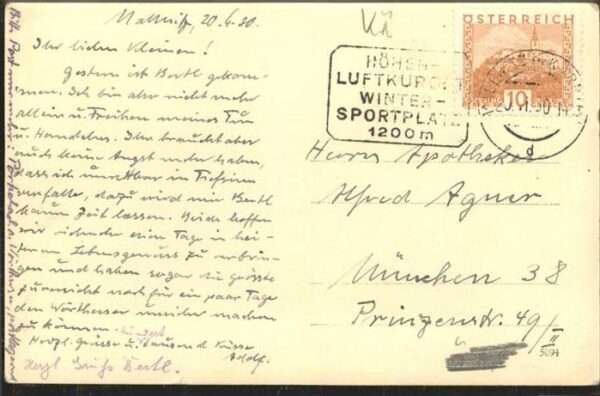 Mallnitz, 20.6.30.
Ihr lieben Kleinen!
Gestern ist Bertl gekom-
men. Ich bin also nicht mehr
allein u. Freiherr meines Tun
u. Handelns. Ihr braucht aber
auch keine Angst mehr haben,
dass ich in Tiefsinn
verfalle, dazu wird mir Bertl
kaum Zeit lassen. Beide hoffen
wir schöne Tage in hei-
terem Lebensgenuss zu verbrin-
gen und haben sogar die grösste
Zuversicht noch für ein paar Tage
den Wörthersee machen
zu können.
Herzl. Grüsse u. tausend Küsse
Adolf.
Herzl. Grüße Bertl.
ÖSTERREICH
10
HÖHEN-
LUFTKURORT
WINTER-
SPORTPLATZ
1200 m
d
Herrn Apotheker
Alfred Agner
München 38
Prinzenstr. 49/II
5094